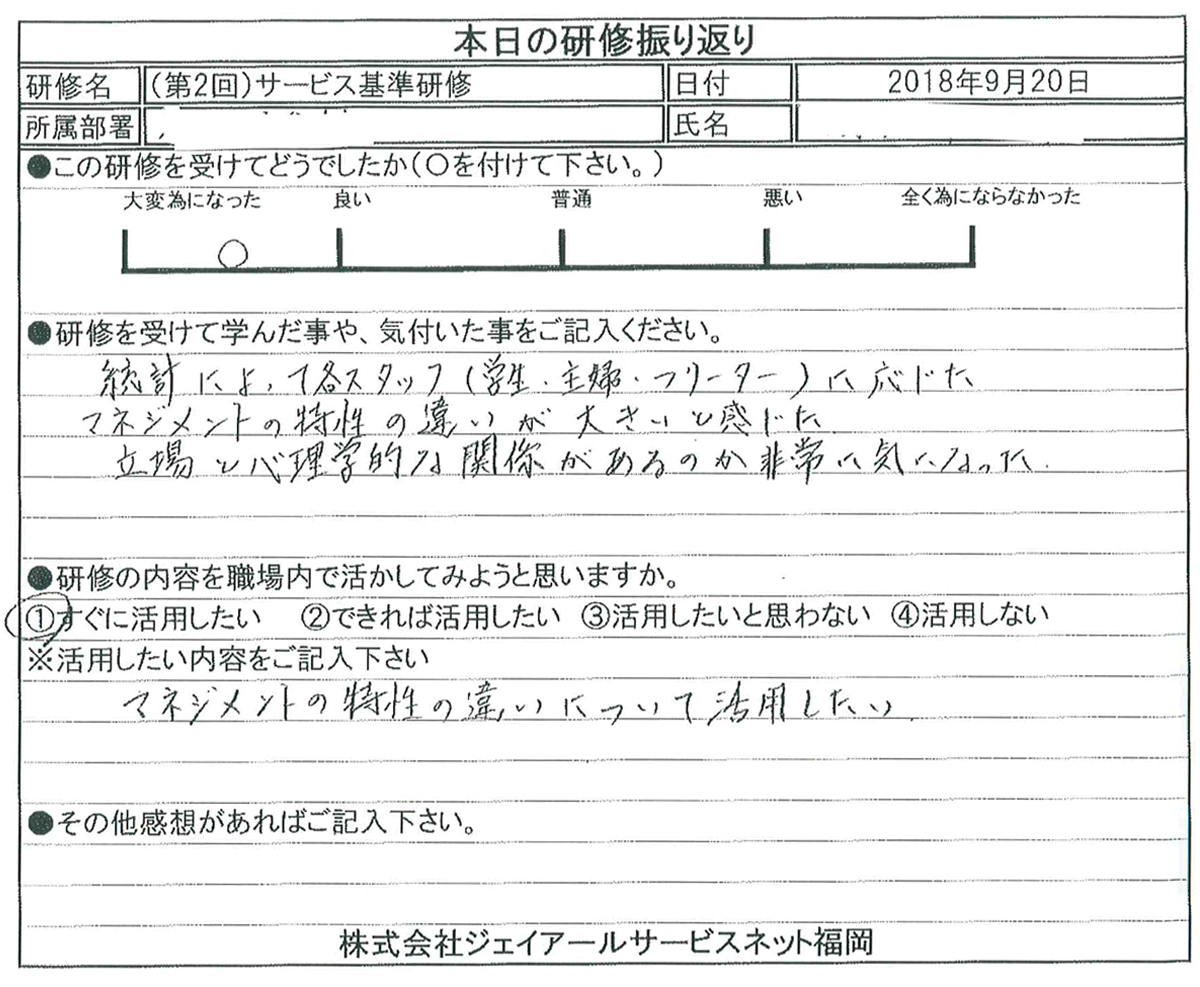 本日の研修振り返り
研修名 (第2回)サービス基準研修 日付 2018年9月20日
所属部署 氏名
●この研修を受けてどうでしたか(〇を付けて下さい。)
大変為になった 良い 普通 悪い 全く為にならなかった
●研修を受けて学んだ事や、気付いた事をご記入ください。
統計によって各スタッフ(学生・主婦・フリーター)に応じた
マネジメントの特性の違いが大きいと感じた.
立場と心理学的な関係があるのか非常に気になった.
●研修の内容を職場内で活かしてみようと思いますか。
①すぐに活用したい ②できれば活用したい ③活用したいと思わない ④活用しない
※活用したい内容をご記入下さい
マネジメントの特性の違いについて活用したい.
●その他感想があればご記入下さい。
株式会社ジェイアールサービスネット福岡